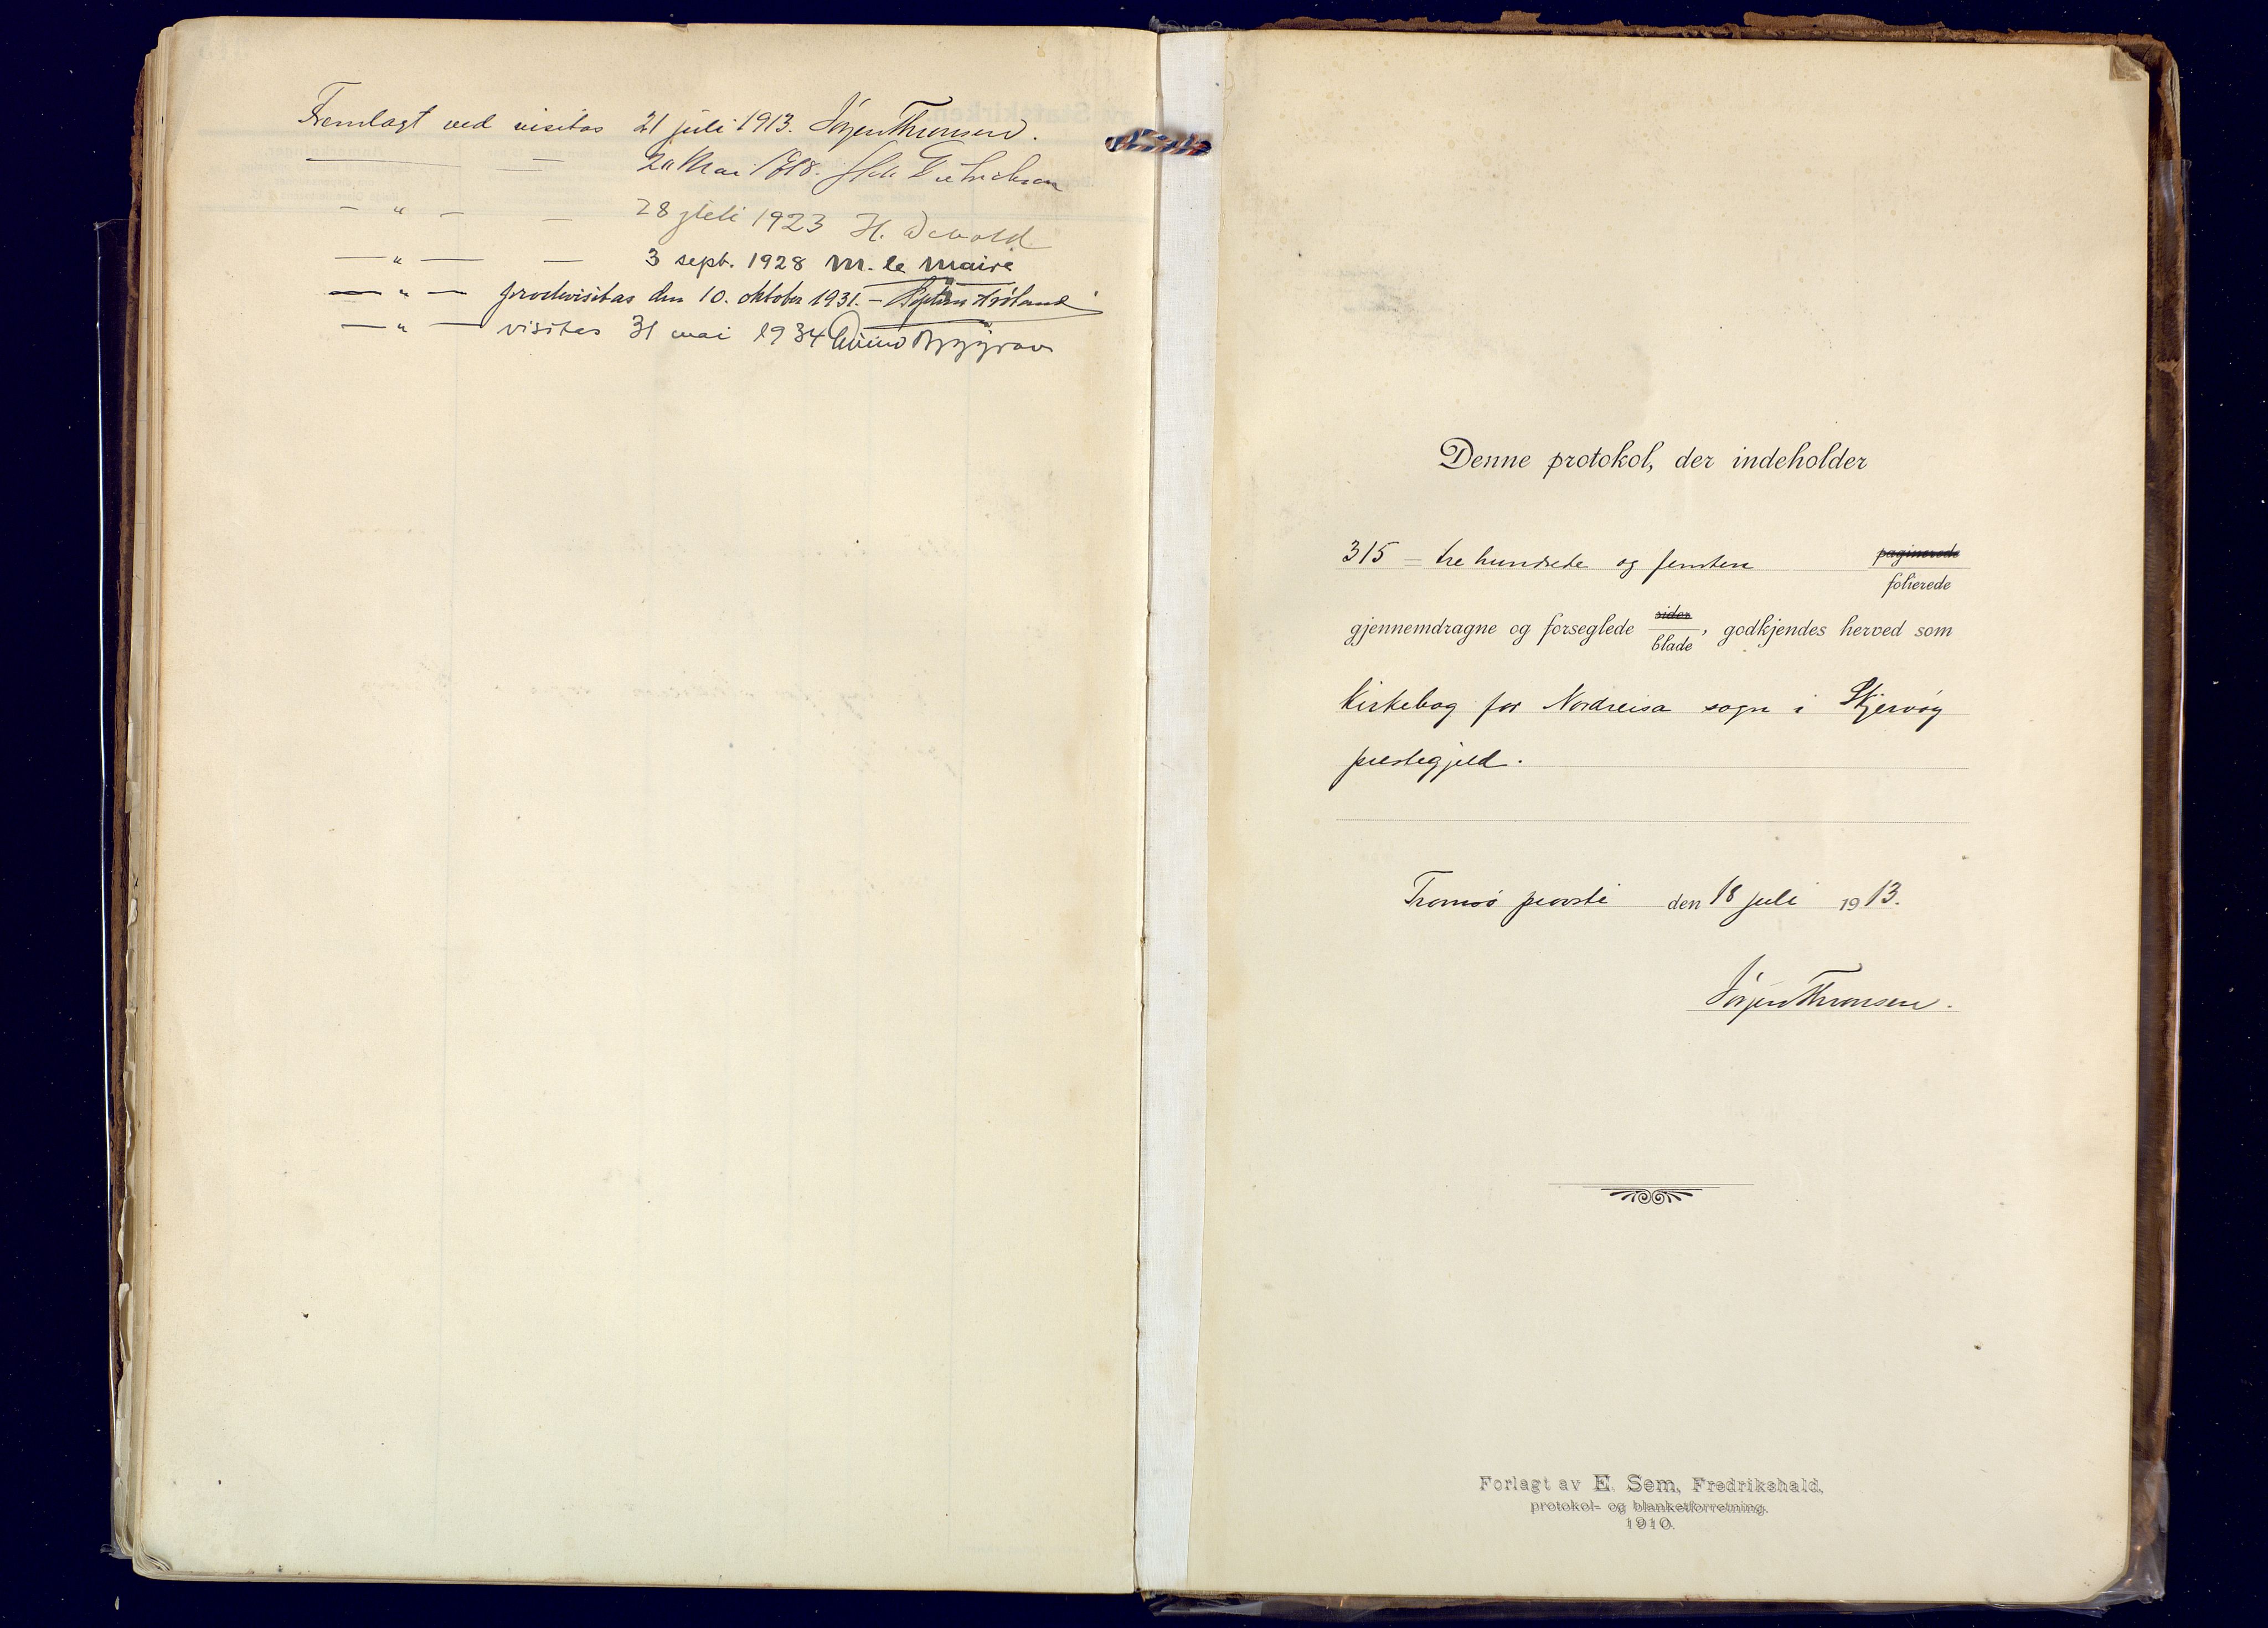 Fremlagt ved visitas 21 juli 1913. Jørgen Thronsen.
— — 20 Mai 1918. Dietrichson
— " — — 28 juli 1923 H. Devold
— " — — 3 sept. 1928 M. le Maire
— " — prostevisitas den 10. oktober 1931. —
— " — visitas 31 mai 1934 Eivind Berggrav
Denne protokol, der indeholder
315 = tre hundrede og femten paginerede
folierede
gjennemdragne og forseglede sider
blade, godkjendes herved som
kirkebog for Nordreisa sogn i Skjervøy
prestegjeld.
Tromsø provsti den 18 juli 1913.
Jørgen Thronsen.
Forlagt av E. Sem, Fredrikshald,
protokol- og blanketforretning.
1910.